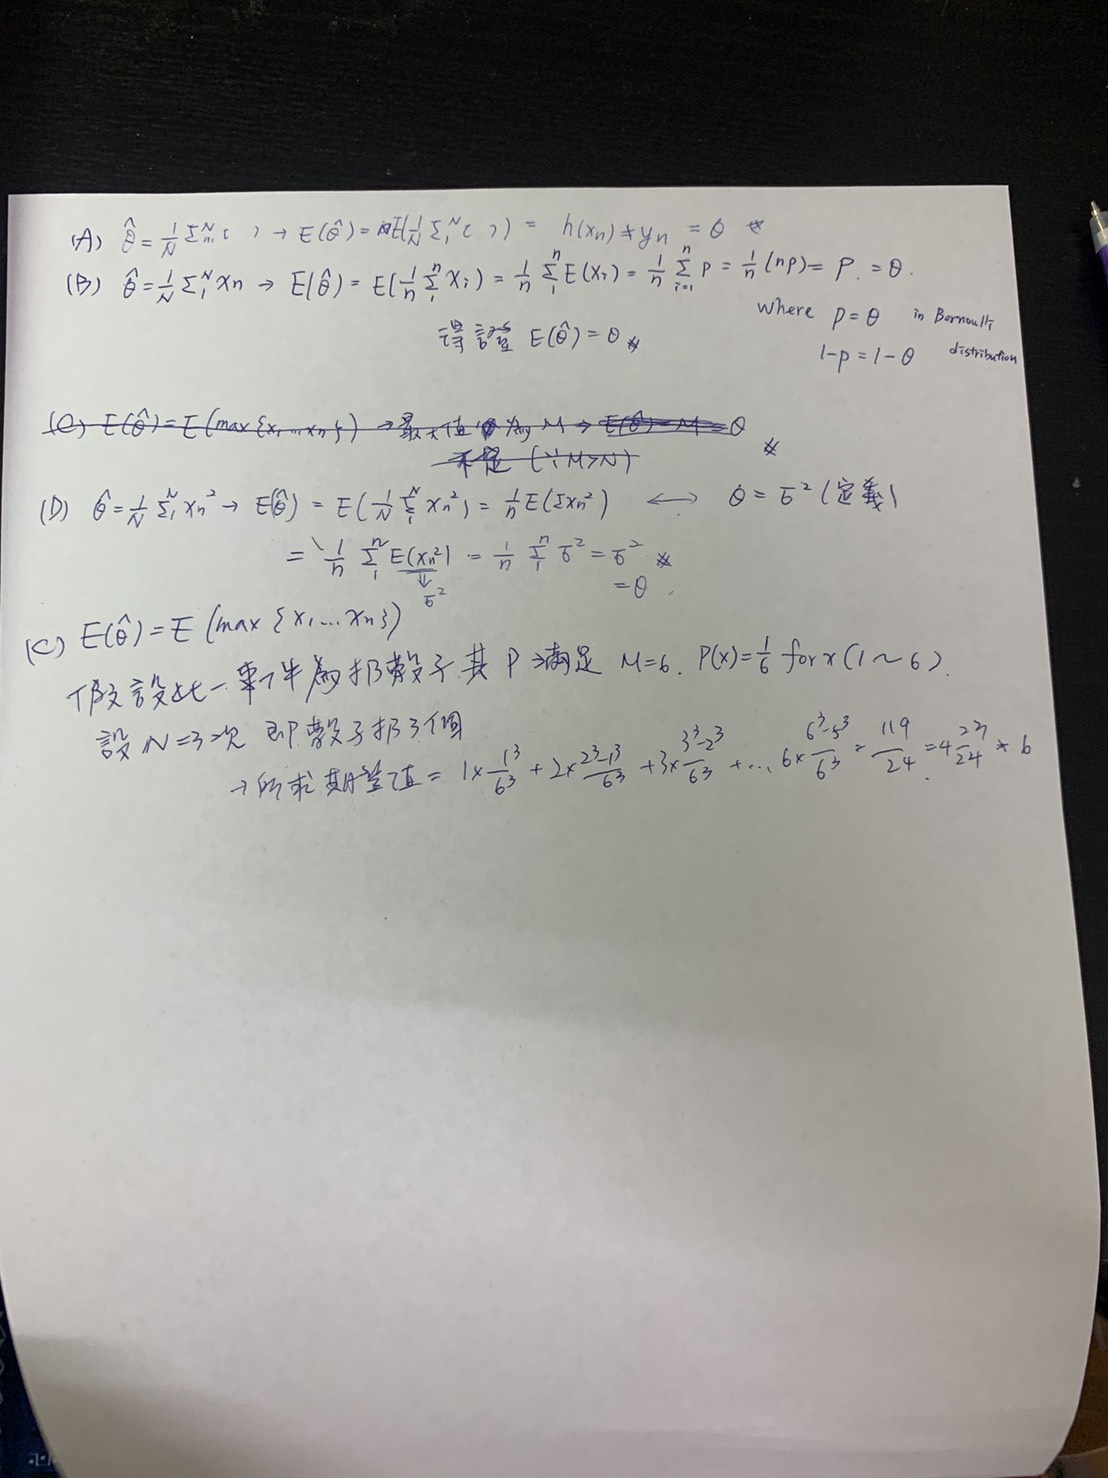 (A) θ̂ = 1/N Σₙᴺ ( ) → E(θ̂) = E(1/N Σ₁ᴺ ( )) = h(xn) ≠ yn = θ ※
(B) θ̂ = 1/N Σ₁ᴺ xn → E(θ̂) = E(1/n Σ₁ⁿ Xi) = 1/n Σ₁ⁿ E(Xi) = 1/n Σᵢ₌₁ⁿ P = 1/n (np) = P. = θ.
where p = θ in Bernoulli
1-p = 1-θ distribution
得證 E(θ̂) = θ ※
(C) E(θ̂) = E(max{x1...xn}) → 最大值 為 M → E(θ̂) = M = θ
不是 (∵M>N) ※
(D) θ̂ = 1/N Σ₁ᴺ xn² → E(θ̂) = E(1/N Σ₁ᴺ xn²) = 1/n E(Σxn²) ←→ θ = σ² (定義)
= 1/n Σ₁ⁿ E(xn²) = 1/n Σ₁ⁿ σ² = σ² ※
⇓ σ² = θ.
(C) E(θ̂) = E(max{x1...xn})
假設此一事件為扔骰子 其 P 滿足 M=6. P(x) = 1/6 for x (1~6).
設 N=3次 即骰子扔3個
→ 所求期望值 = 1×1³/6³ + 2×2³-1³/6³ + 3×3³-2³/6³ + ... 6×6³-5³/6³ = 119/24 = 4 23/24 ≠ 6